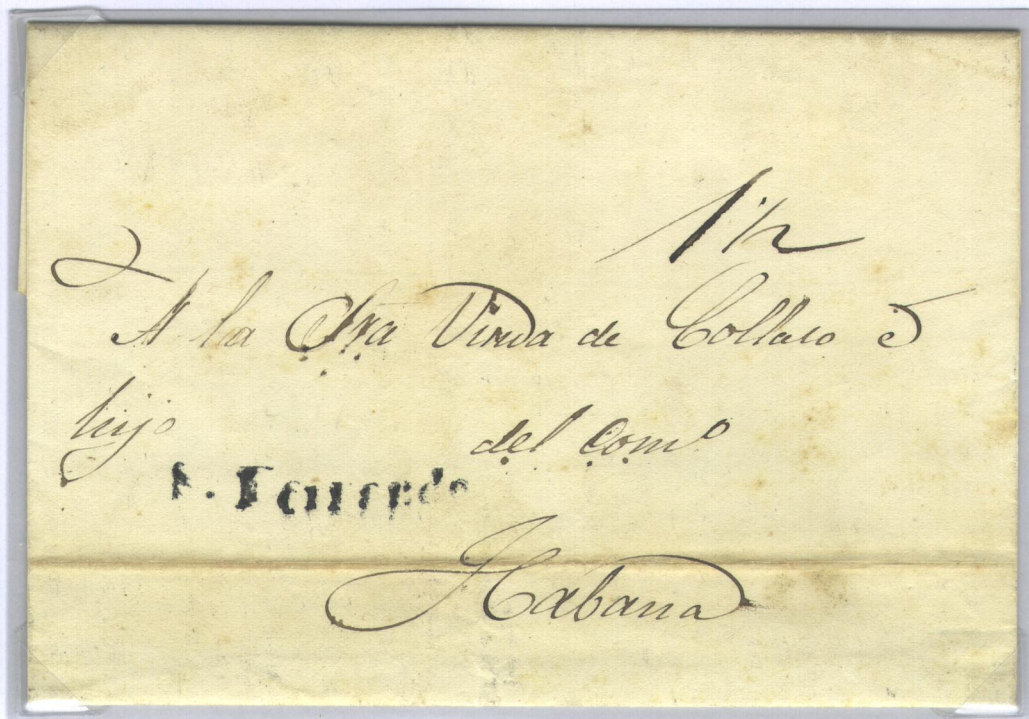 1 1/2
A la Sra Viuda de Collaso é
hijo
del Comº
Habana